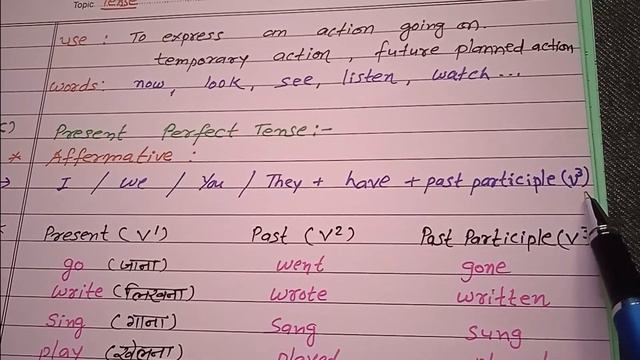 Topic Tense
use : To express an action going on
temporary action, future planned action
words: now, look, see, listen, watch...
Present Perfect Tense:-
* Affermative :
→ I / we / You / They + have + past participle (v³)
Present (V¹) Past (V²) Past Participle (V³
go (जाना) went gone
write (लिखना) wrote written
sing (गाना) sang sung
play (खेलना) played